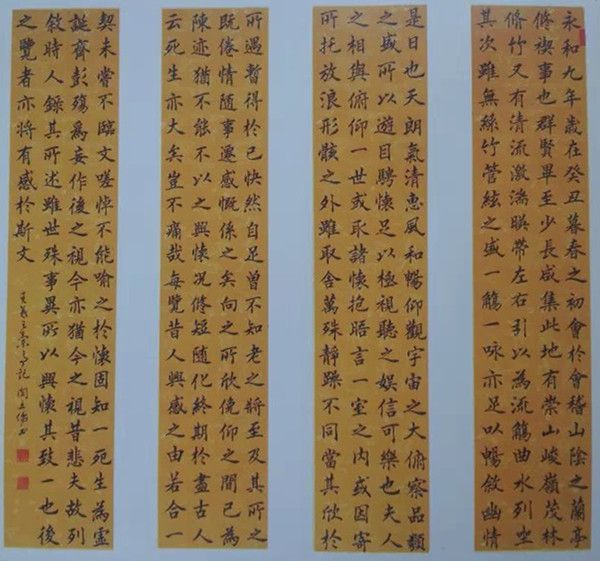 永和九年歲在癸丑暮春之初會於會稽山陰之蘭亭
脩禊事也群賢畢至少長咸集此地有崇山峻嶺茂林
脩竹又有清流激湍暎帶左右引以為流觴曲水列坐
其次雖無絲竹管絃之盛一觴一咏亦足以暢敘幽情
是日也天朗氣清惠風和暢仰觀宇宙之大俯察品類
之盛所以遊目騁懷足以極視聽之娛信可樂也夫人
之相與俯仰一世或取諸懷抱晤言一室之內或因寄
所托放浪形骸之外雖取舍萬殊靜躁不同當其欣於
所遇暫得於己快然自足曾不知老之將至及其所之
既倦情隨事遷感慨係之矣向之所欣俛仰之間已為
陳迹猶不能不以之興懷況脩短隨化終期於盡古人
云死生亦大矣豈不痛哉每覽昔人興感之由若合一
契未嘗不臨文嗟悼不能喻之於懷固知一死生為虛
誕齊彭殤為妄作後之視今亦猶今之視昔悲夫故列
敘時人錄其所述雖世殊事異所以興懷其致一也後
之覽者亦將有感於斯文
王羲之蘭亭記